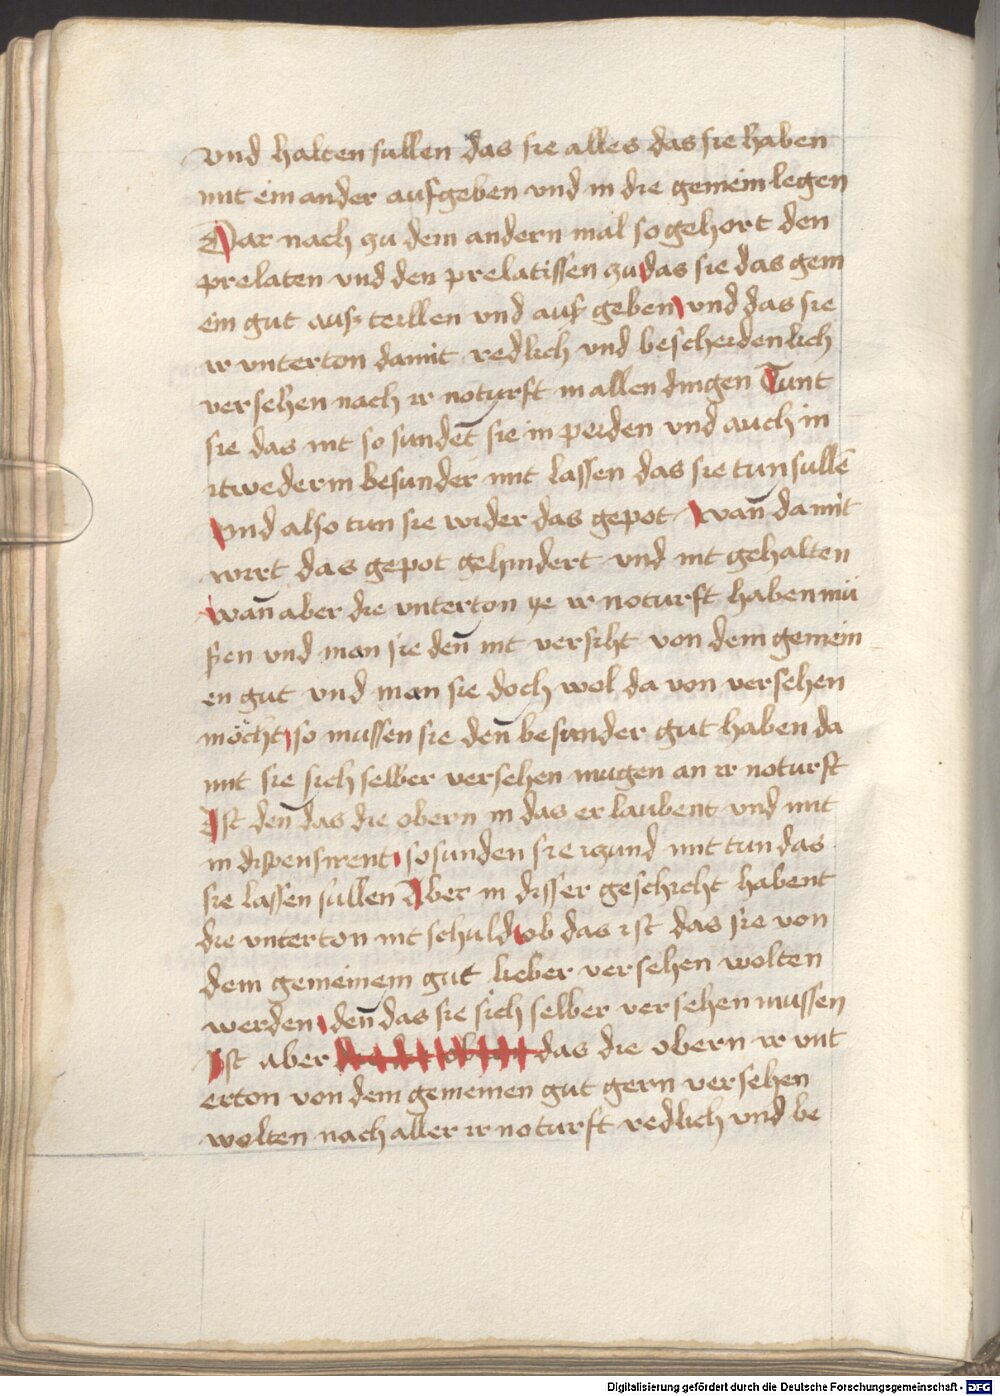 vnd halten sullen das sie alles das sie haben
mit ein ander aufgeben vnd in die gemein legen
Dar nach zu dem andern mal so gehort den
prelaten vnd den prelatissen zu das sie das gem
ein gut ausz teillen vnd ausz geben vnd das sie
ir vnterton damit redlich vnd bescheidenlich
versehen nach ir noturft in allen dingen Tunt
sie das nit so sundet sie in peiden vnd auch in
itwederm besunder mit lassen das sie tun sullē
vnd also tun sie wider das gepot wan̄ da mit
wirt das gepot gehindert vnd nit gehalten
wan̄ aber die vnterton ye ir noturft haben mü
ßen vnd man sie den̄ nit versiht von dem gemein
en gut vnd man sie doch wol da von versehen
möcht so mussen sie den̄ besunder gut haben da
mit sie sich selber versehen mugen an ir noturft
Ist den̄ das die obern in das erlaubent vnd mit
in dispensirent so sunden sie iczund mit tun das
sie lassen sullen Aber in disser geschicht habent
die vnterton nit schuld ob das ist das sie von
dem gemeinem gut lieber versehen wolten
werden den̄ das sie sich selber versehen mussen
Ist aber das die obern ir vnt
erton von dem gemeinen gut gern versehen
wolten nach aller ir noturft redlich vnd be
Digitalisierung gefördert durch die Deutsche Forschungsgemeinschaft - DFG